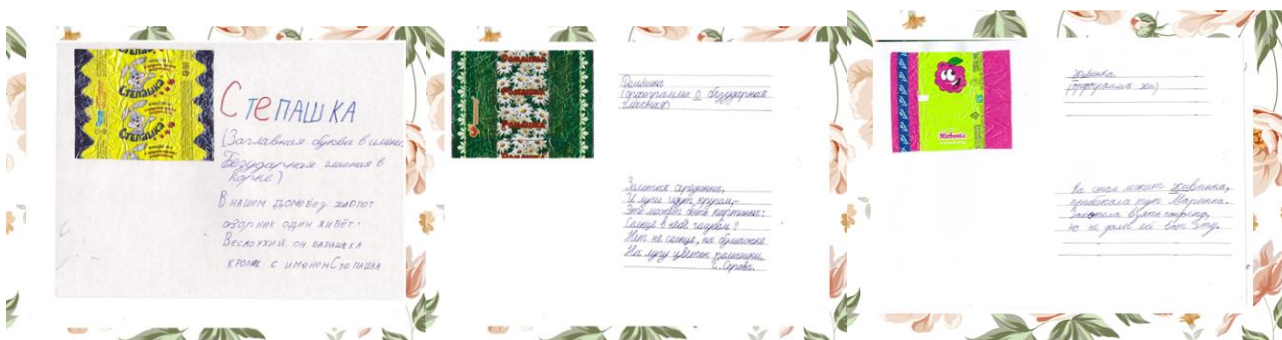 Степашка
Степашка
СТЕПАШКА
(Заглавная буква в имени,
Безударная гласная в
корне)
В нашем доме без хлопот
озорник один живёт.
Веслоухий он
кролик с именем Степашка
Ромашка
Ромашка
Ромашка
(орфограмма о безударная
гласная)
Золотая серединка,
И лучи идут кругом,-
Это может быть картинка:
Солнце в небе голубом?
Нет не солнце, на бумажке
На лугу цветок ромашки.
Е. Серова.
Живинка
Живинка
(орфограмма жи)
На столе лежит живинка,
прибежала тут Маринка.
Захотела взять
но не дали ей